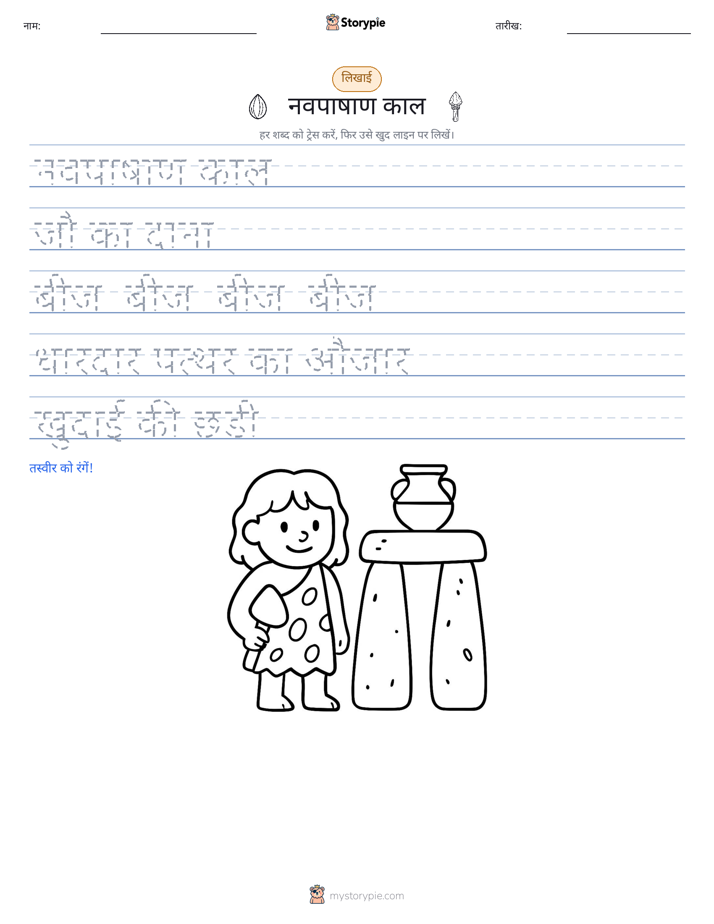 नाम:
Storypie
तारीख:
लिखाई
नवपाषाण काल
हर शब्द को ट्रेस करें, फिर उसे खुद लाइन पर लिखें।
नवपाषाण काल
जौ का दाना
बीज बीज बीज बीज
धारदार पत्थर का औजार
खुदाई की छड़ी
तस्वीर को रंगें!
mystorypie.com